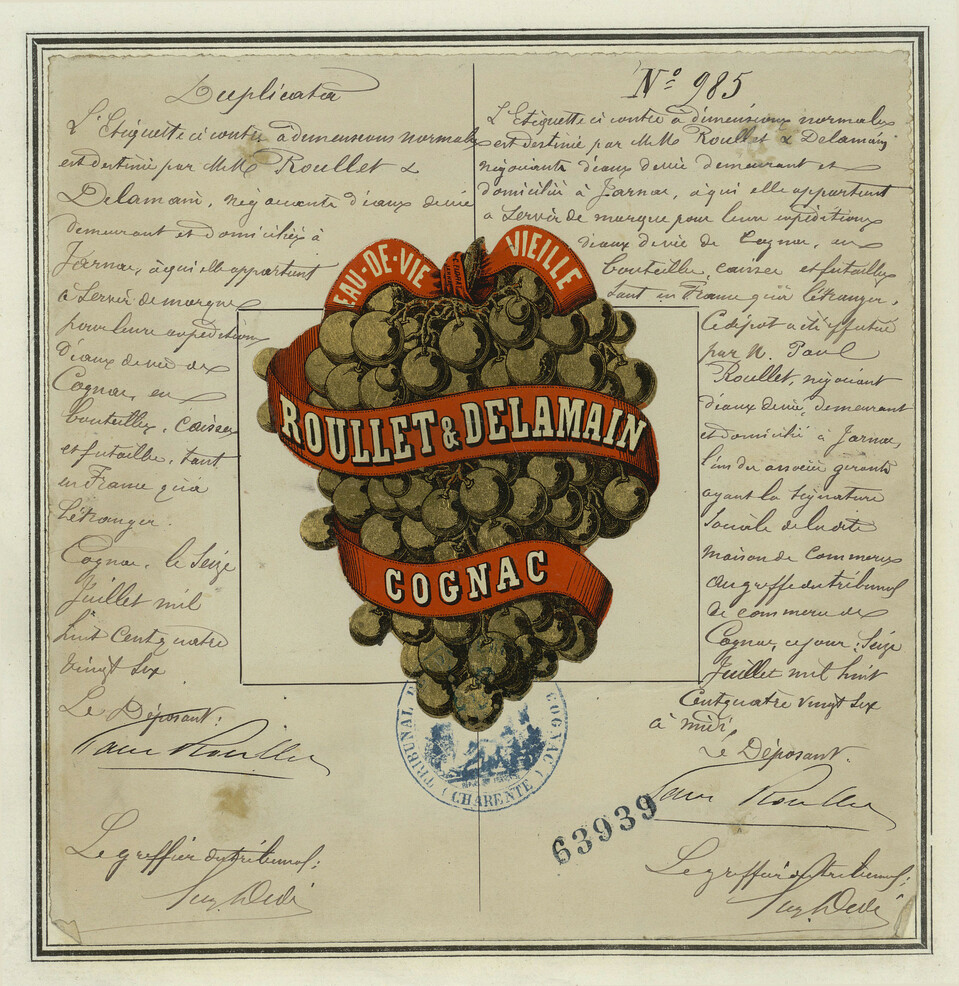 Duplicata
L'Etiquette ci contre, à dimensions normales
est destinée par M.M. Roullet &
Delamain, négociants d'eaux de vie
demeurant et domiciliés à
Jarnac, à qui elle appartient
à servir de marque
pour leurs expéditions
d'eaux de vie de
Cognac, en
bouteilles, caisses
et futailles, tant
en France qu'à
l'étranger.
Cognac, le Seize
Juillet mil
huit cent quatre
vingt six
Le Déposant:
Paul Roullet
Le greffier du tribunal:
No 985
L'Etiquette ci contre à dimensions normales
est destinée par M.M. Roullet & Delamain
négociants d'eaux de vie demeurant et
domiciliés à Jarnac, à qui elle appartient
à servir de marque pour leurs expéditions
d'eaux de vie de Cognac, en
bouteilles, caisses et futailles
tant en France qu'à l'étranger.
Ce dépôt a été effectué
par M. Paul
Roullet, négociant
d'eaux de vie, demeurant
et domicilié à Jarnac,
l'un des associés gérants
ayant la signature
sociale de la dite
maison de commerce
au greffe du tribunal
de commerce de
Cognac, ce jour, Seize
Juillet mil huit
cent quatre vingt six
à midi,
Le Déposant.
Paul Roullet
Le greffier du tribunal:
EAU-DE-VIE VIEILLE
ROULLET & DELAMAIN
COGNAC
TRIBUNAL D COGNAC
(CHARENTE)
63939